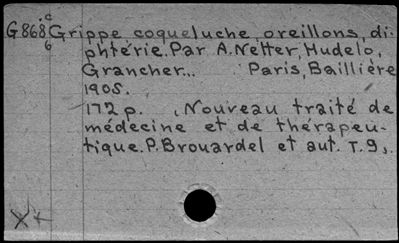 c
G868 Grippe coqueluche, oreillons, di-
6 phtérie. Par A. Netter, Hudelo,
Grancher... Paris, Baillière
1905.
172 p. , Nouveau traité de
médecine et de thérapeu-
tique. P. Brouardel et aut. T. 9,.